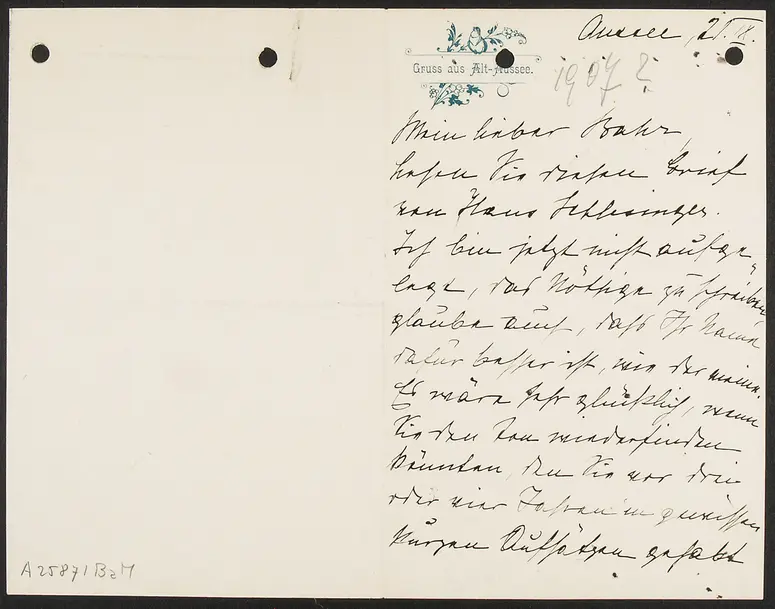 Aussee, 21. IX.
Gruss aus Alt-Aussee.
1907?
Mein lieber Bahr,
lesen Sie diesen Brief
von Hans Schlesinger.
Ich bin jetzt nicht aufge
legt, das Nöthige zu schreiben
glaube auch, dass Ihr Name
dafür besser ist, wie der meine.
Es wäre sehr glücklich, wenn
Sie den Ton wiederfinden
könnten, den Sie vor drei
oder vier Jahren in gewissen
kurzen Aufsätzen gehabt
A 25871 BaM